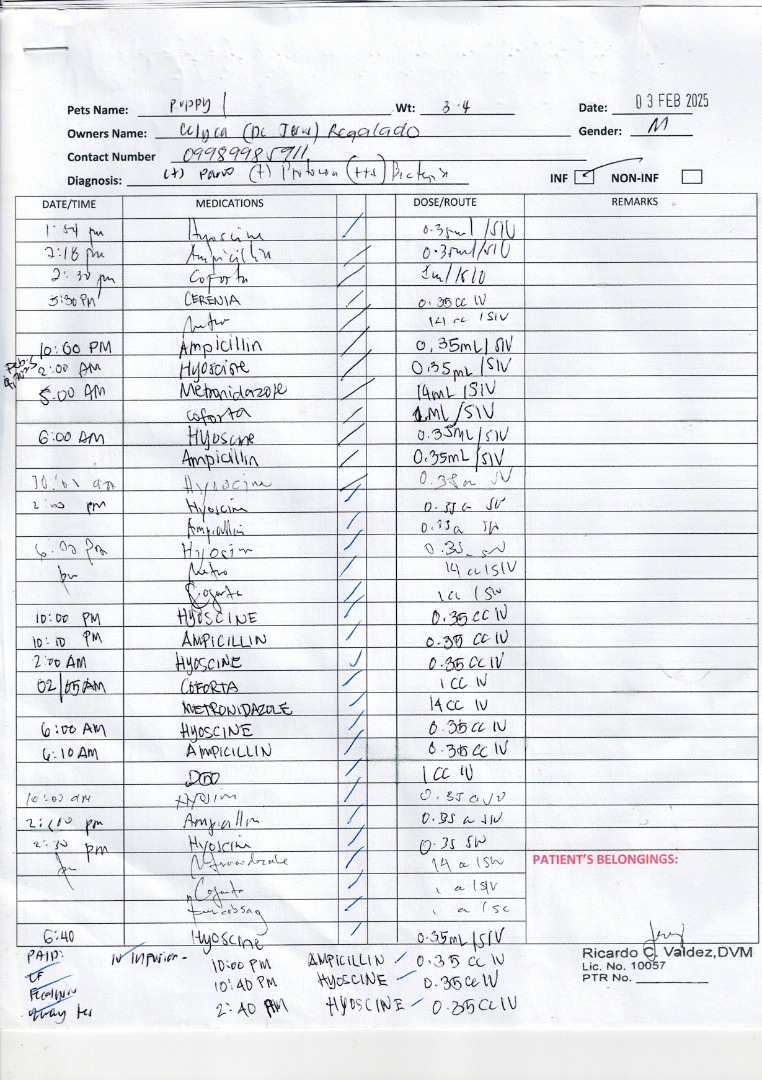 Pets Name: PUPPY 1 Wt: 3.4 Date: 03 FEB 2025
Owners Name: (De Jesus) Regalado Gender: M
Contact Number 09989985911
Diagnosis: (+) Parvo (+) Protozoa (++) Bacteria INF NON-INF
DATE/TIME MEDICATIONS DOSE/ROUTE REMARKS
1:54 pm Hyoscine 0.35ml/SIV
2:18 pm Ampicillin 0.35ml/SIV
2:30 pm Coforta 1ml/SIV
5:30 PM CERENIA 0.35cc IV
Metro 14cc/SIV
10:00 PM Ampicillin 0.35mL/SIV
2:00 AM Hyoscine 0.35mL/SIV
5:00 AM Metronidazole 14mL/SIV
coforta 1ML/SIV
6:00 AM Hyoscine 0.35ML/SIV
Ampicillin 0.35mL/SIV
10:01 am Hyoscine 0.35cc IV
2:00 pm Hyoscine 0.35cc IV
Ampicillin 0.35cc
6:00 pm Hyoscine 0.35
pm Metro 14cc/SIV
Coforta 1cc/SIV
10:00 PM HYOSCINE 0.35 CC IV
10:10 PM AMPICILLIN 0.35 CC IV
2:00 AM HYOSCINE 0.35 CC IV
02/05 AM COFORTA 1 CC IV
METRONIDAZOLE 14 CC IV
6:00 AM HYOSCINE 0.35 CC IV
6:10 AM AMPICILLIN 0.35 CC IV
1 CC IV
10:00 am Hyoscine 0.35cc IV
2:00 pm Ampicillin 0.35cc SIV
2:30 pm Hyoscine 0.35 SIV
pm Metronidazole 14cc/SIV
Coforta 1cc/SIV
1cc/SC
PATIENT'S BELONGINGS:
6:40 Hyoscine 0.35mL/SIV
PAID: IV Infusion - 10:00 PM AMPICILLIN 0.35 CC IV
CF 10:40 PM HYOSCINE 0.35CC IV
2:40 AM HYOSCINE 0.35CC IV
Ricardo C. Valdez, DVM
Lic. No. 10057
PTR No.